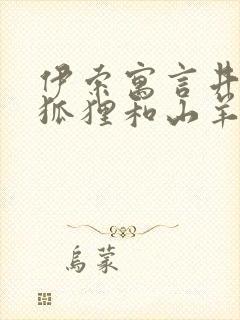 伊索寓言井
狐狸和山羊
烏蒙